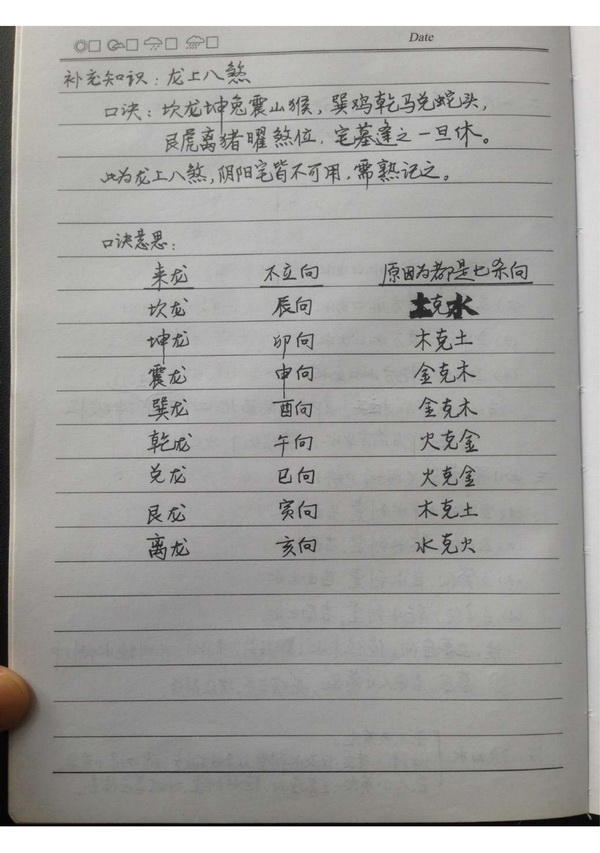 Date
补充知识：龙上八煞
口诀：坎龙坤兔震山猴，巽鸡乾马兑蛇头，
艮虎离猪曜煞位，宅墓逢之一旦休。
此为龙上八煞，阴阳宅皆不可用，需熟记之。
口诀意思：
来龙 不立向 原因为都是七杀向
坎龙 辰向 土克水
坤龙 卯向 木克土
震龙 申向 金克木
巽龙 酉向 金克木
乾龙 午向 火克金
兑龙 巳向 火克金
艮龙 寅向 木克土
离龙 亥向 水克火